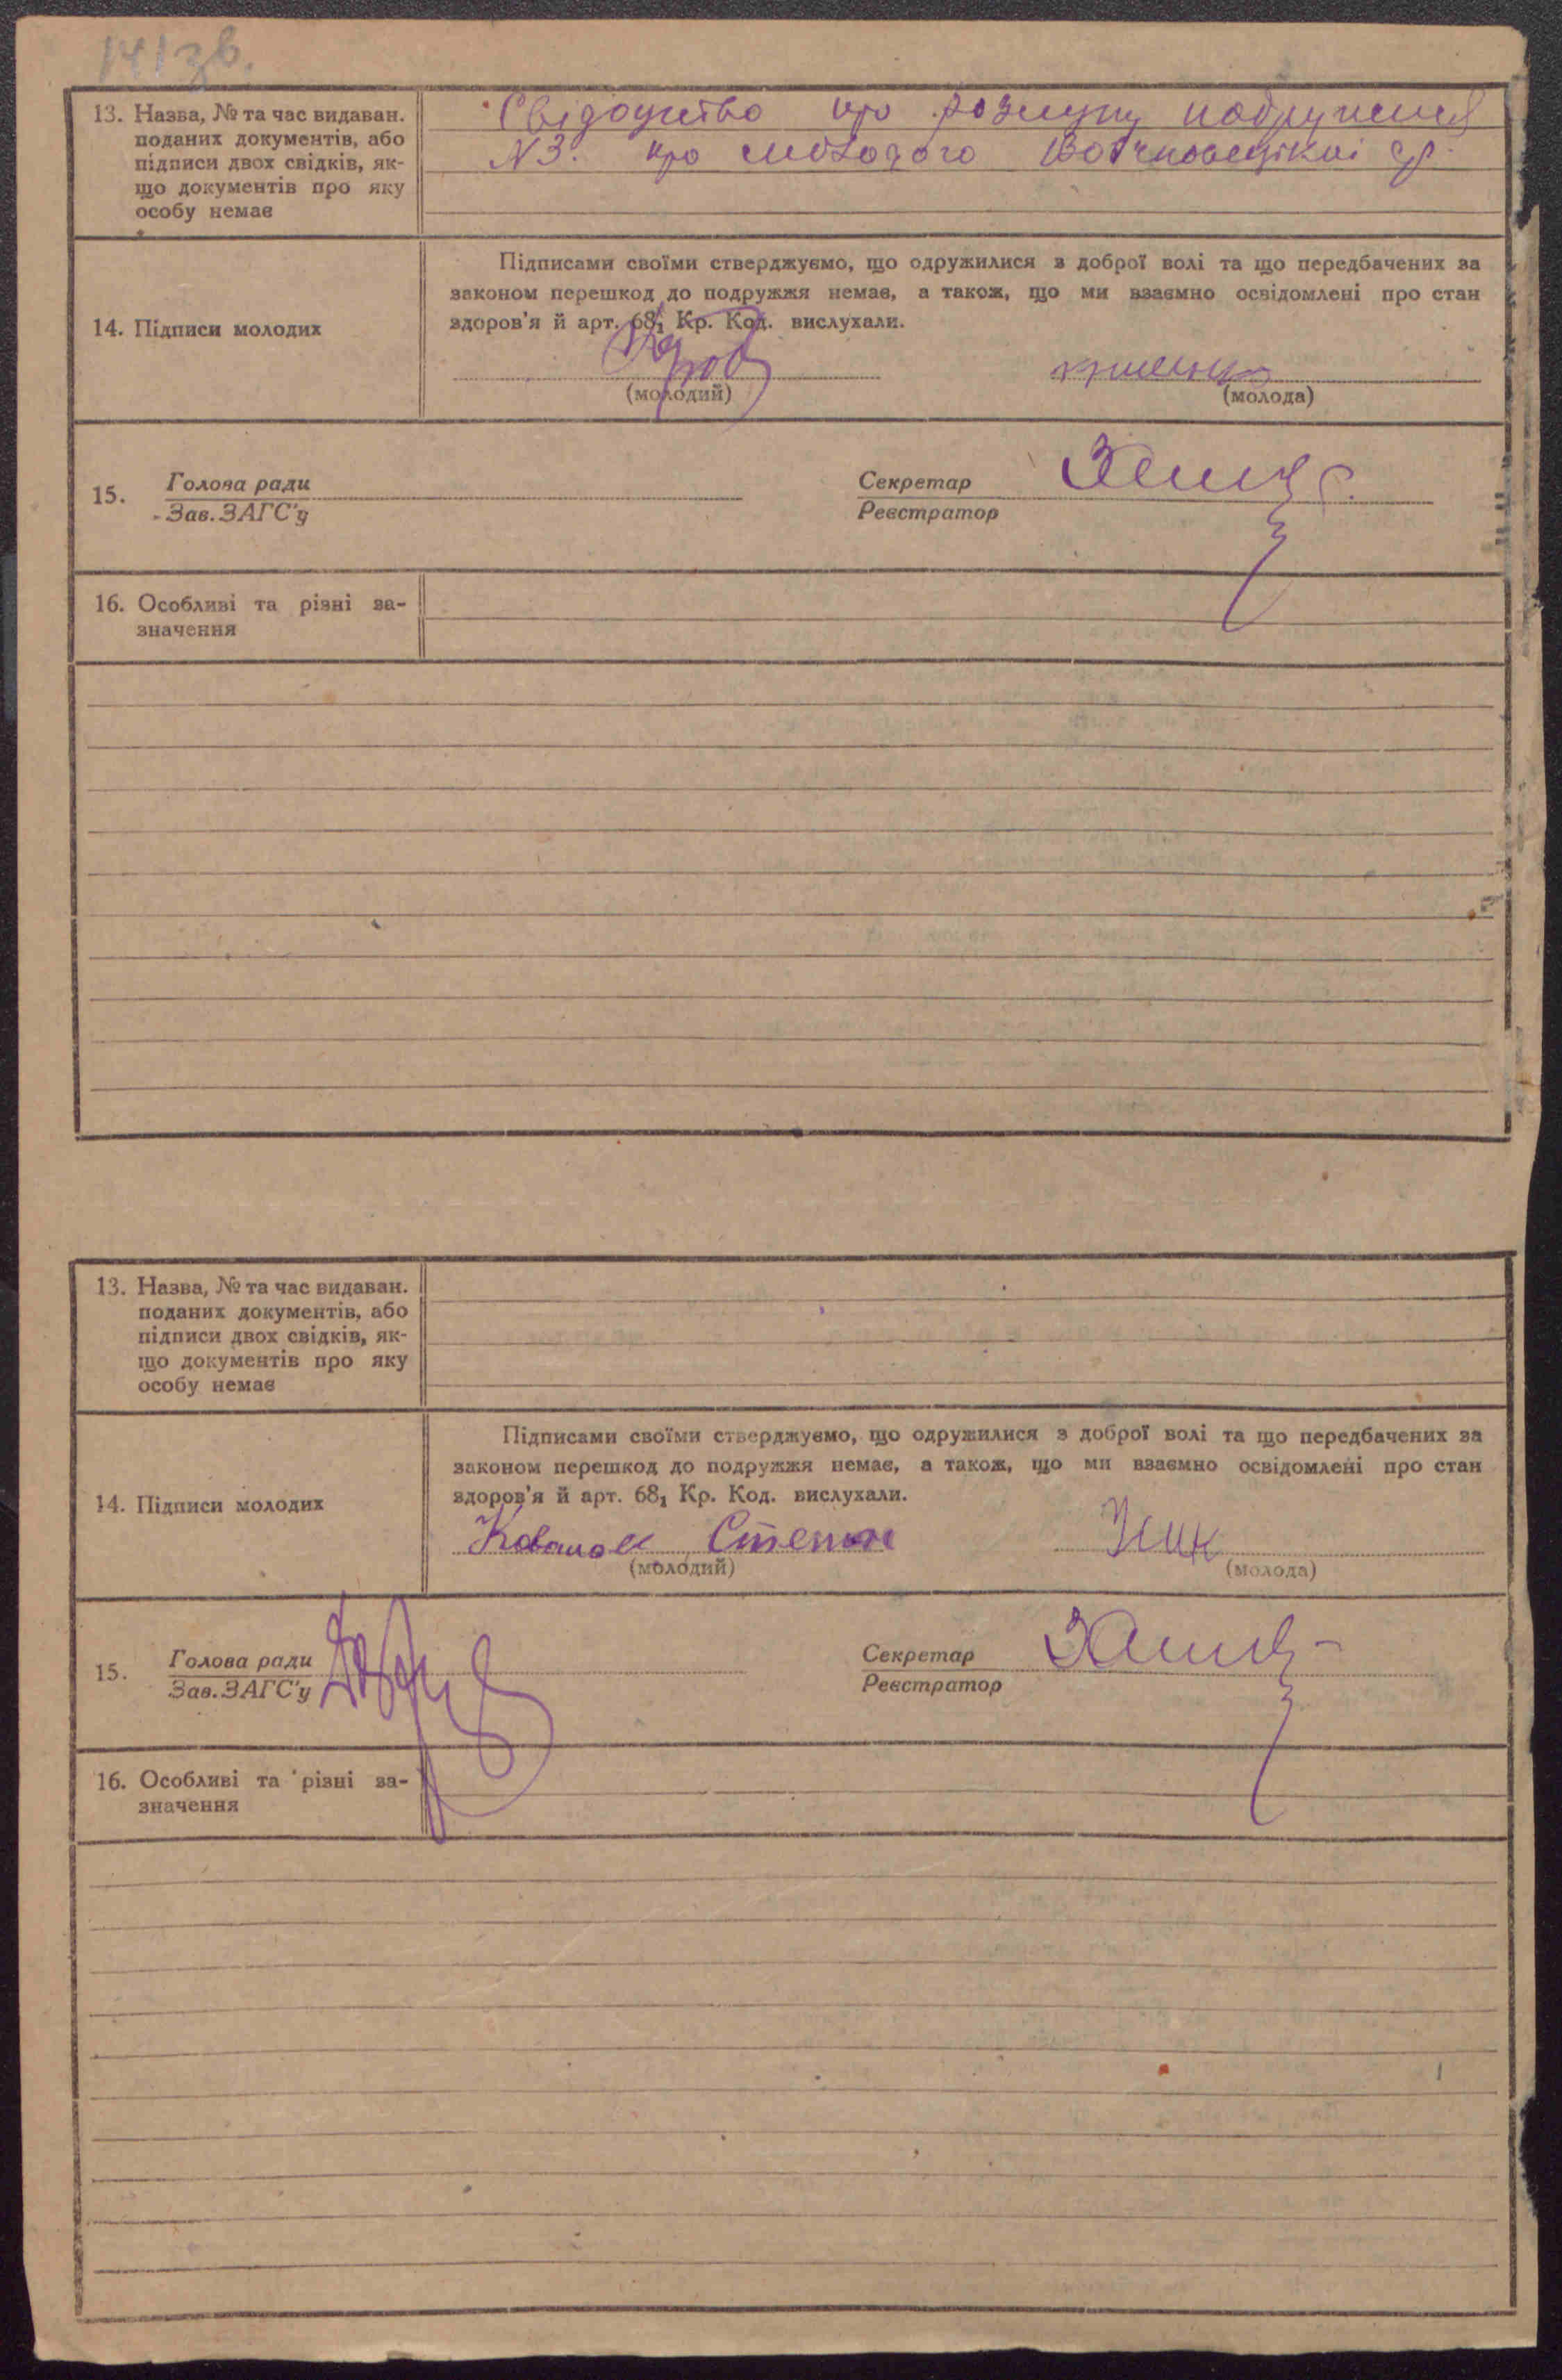 141 зв.
13. Назва, № та час видаван.
поданих документів, або
підписи двох свідків, як-
що документів про яку
особу немає
Свідоцтво про розлуку
N 3. про молодого
14. Підписи молодих
Підписами своїми стверджуємо, що одружилися з доброї волі та що передбачених за
законом перешкод до подружжя немає, а також, що ми взаємно освідомлені про стан
здоров'я й арт. 68₁ Кр. Код. вислухали.
(молодий)
(молода)
15. Голова ради
Зав. ЗАГС'у
Секретар
Реєстратор
16. Особливі та різні за-
значення
13. Назва, № та час видаван.
поданих документів, або
підписи двох свідків, як-
що документів про яку
особу немає
14. Підписи молодих
Підписами своїми стверджуємо, що одружилися з доброї волі та що передбачених за
законом перешкод до подружжя немає, а також, що ми взаємно освідомлені про стан
здоров'я й арт. 68₁ Кр. Код. вислухали.
Степан
(молодий)
(молода)
15. Голова ради
Зав. ЗАГС'у
Секретар
Реєстратор
16. Особливі та різні за-
значення